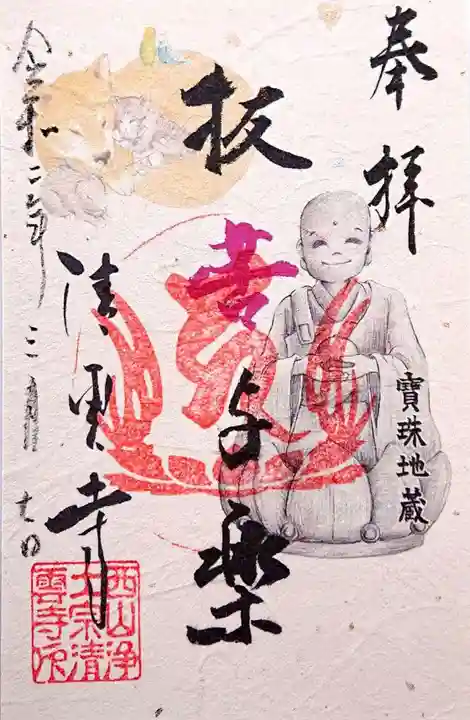 奉拝
寶珠地蔵
抜苦与楽
令和二年三月七日
清雲寺
西山浄
土宗清
雲寺印